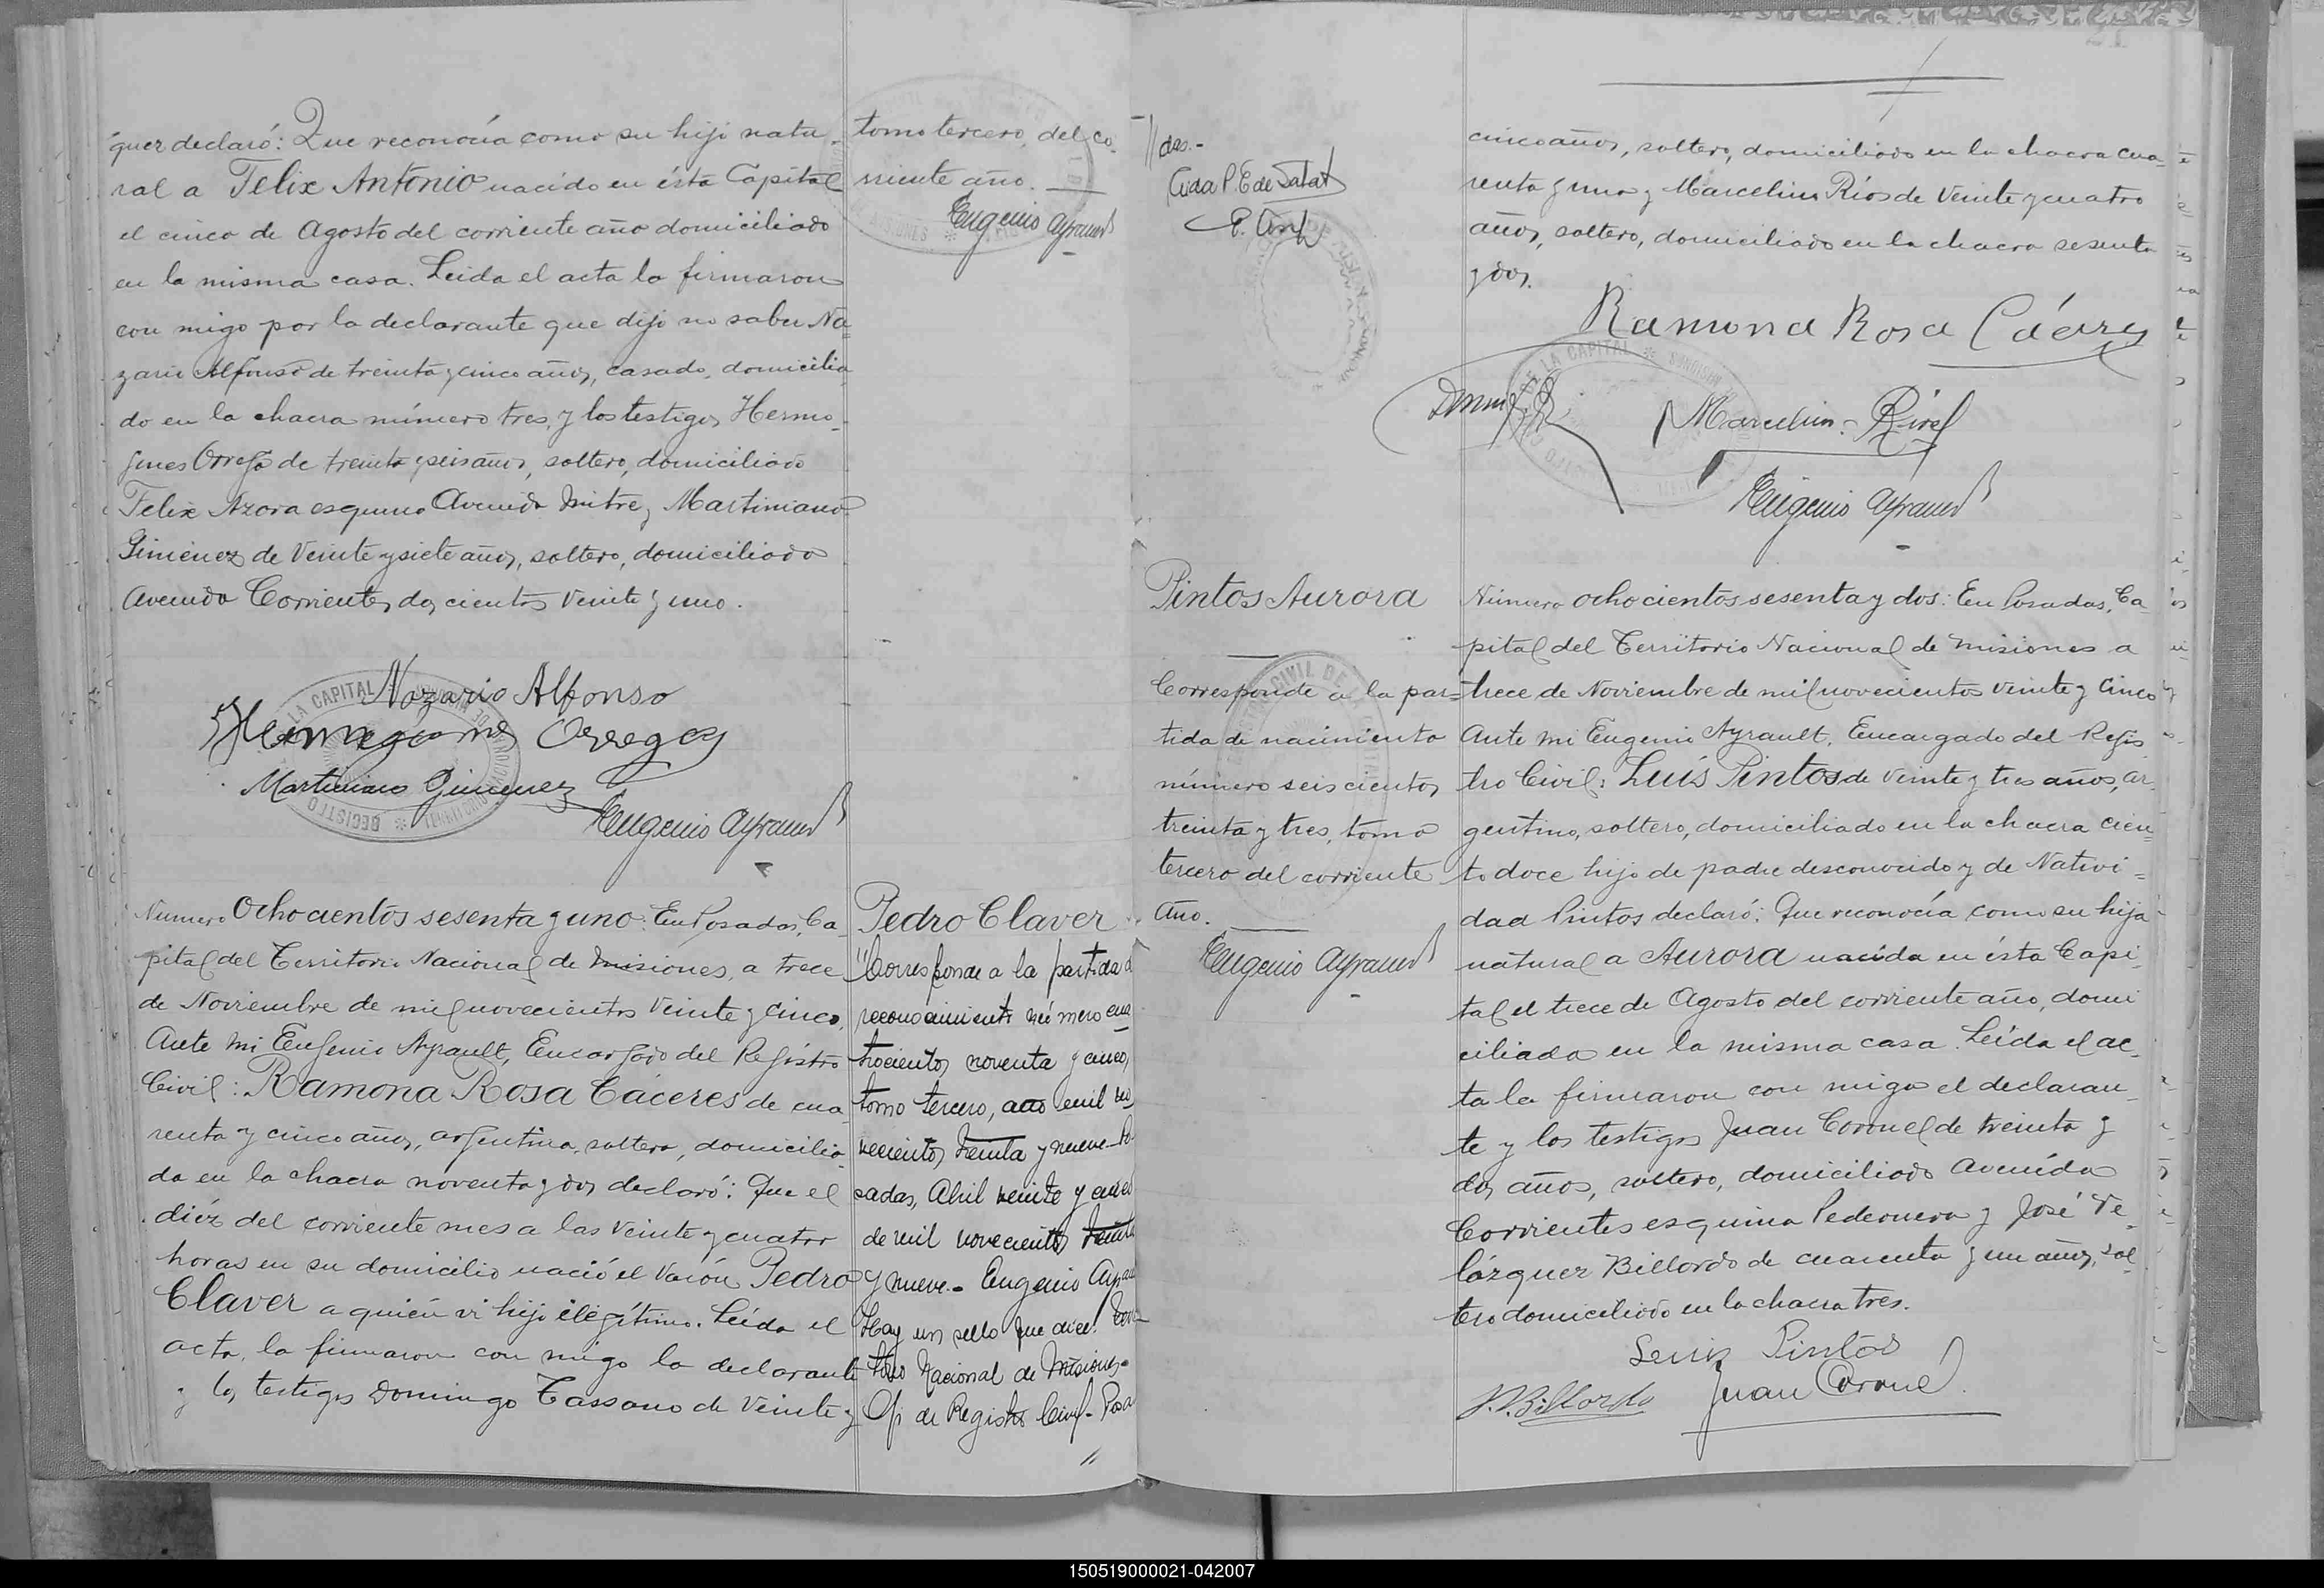 quez declaró: Que reconocía como su hijo natu-
ral a Felix Antonio nacido en ésta Capital
el cinco de Agosto del corriente año domiciliado
en la misma casa. Leida el acta la firmaron
con migo por la declarante que dijo no saber Na=
zario Alfonso de treinta y cinco años, casado, domicilia-
do en la chacra número tres, y los testigos Hermo-
genes Orrego de treinta y seis años, soltero, domiciliado
Felix Azara esquina Avenida Mitre y Martiniano
Gimenez de veinte y siete años, soltero, domiciliado
Avenida Corrientes dos cientos veinte y uno.
tomo tercero, del co-
rriente año.
Eugenio Ayrault
Nazario Alfonso
Hermogenes Orrego
Martiniano Gimenez
Eugenio Ayrault
Número Ochocientos sesenta y uno: En Posadas, Ca-
pital del Territorio Nacional de Misiones, a trece
de Noviembre de mil novecientos veinte y cinco,
Ante mi Eugenio Ayrault, Encargado del Registro
Civil: Ramona Rosa Cáceres de cua-
renta y cinco años, argentina, soltera, domicilia-
da en la chacra noventa y dos declaró: Que el
diéz del corriente mes a las veinte y cuatro
horas en su domicilio nació el varón Pedro
Claver a quién vi hijo ilegítimo. Leída el
acta, la firmaron con migo la declarante
y los testigos Domingo Cassano de veinte y
Pedro Claver
"Corresponde a la partida d
reconocimiento número cua
trocientos noventa y cinco,
tomo tercero, año mil no
vecientos treinta y nueve- Po-
sadas, Abril veinte y cinco
de mil novecientos treinta
y nueve.- Eugenio Ayrau
Hay un sello que dice: Terri-
torio Nacional de Misiones-
Of. de Registro Civil- Posa
//
//das.-
P. E. de
cinco años, soltero, domiciliado en la chacra cua-
renta y uno y Marcelino Ríos de veinte y cuatro
años, soltero, domiciliado en la chacra sesenta
y dos.
Ramona Rosa Cáceres
Marcelino Rios
Eugenio Ayrault
Pintos Aurora
Corresponde a la par=
tida de nacimiento
número seiscientos
treinta y tres, tomo
tercero del corriente
año.
Eugenio Ayrault
Número ochocientos sesenta y dos: En Posadas, Ca-
pital del Territorio Nacional de Misiones a
trece de Noviembre de mil novecientos veinte y cinco
Ante mi Eugenio Ayrault, Encargado del Regis
tro Civil: Luís Pintos de veinte y tres años, ar-
gentino, soltero, domiciliado en la chacra cien=
to doce hijo de padre desconocido y de Nativi=
dad Pintos declaró: Que reconocía como su hija
natural a Aurora nacida en ésta Capi-
tal el trece de Agosto del corriente año, domi
ciliada en la misma casa. Leída el ac-
ta la firmaron con migo el declaran-
te y los testigos Juan Coronel de treinta y
dos años, soltero, domiciliado Avenida
Corrientes esquina Pedernera y José Ve-
lázquez Billordo de cuarenta y un años, sol
tero domiciliado en la chacra tres.
Luis Pintos
J. V. Billordo Juan Coronel
150519000021-042007